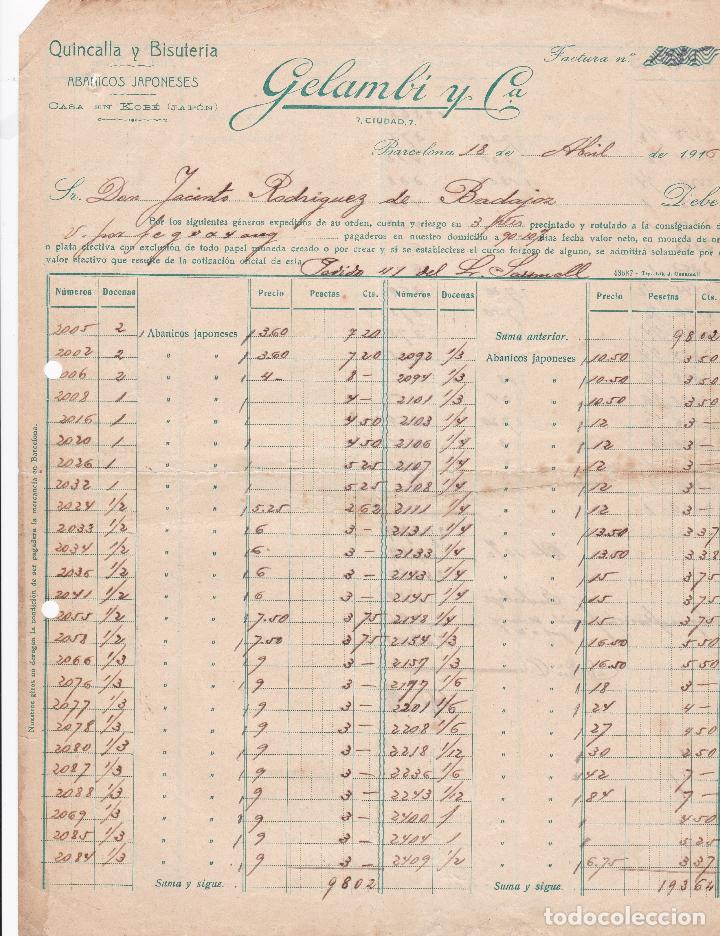 Quincalla y Bisutería
ABANICOS JAPONESES
CASA EN KOBÉ (JAPÓN)
Gelambí y Ca
7, CIUDAD, 7.
Factura n.º
Barcelona 18 de Abril de 1916
Sr. Don Jacinto Rodriguez de Badajoz Debe
Por los siguientes géneros expedidos de su orden, cuenta y riesgo en 3 precintado y rotulado a la consignación d
V. por pagaderos en nuestro domicilio a días fecha valor neto, en moneda de or
o plata efectiva con exclusión de todo papel moneda creado o por crear y si se estableciese el curso forzoso de alguno, se admitirá solamente por e
valor efectivo que resulte de la cotización oficial de esta. Pedido 41 del Sr.
Nuestros giros no derogan la condición de ser pagadera la mercancía en Barcelona.
Números Docenas Precio Pesetas Cts. Números Docenas Precio Pesetas Cts.
2005 2 Abanicos japoneses 3.60 7 20 Suma anterior. 98 02
2002 2 " " 3.60 7 20 2092 1/3 Abanicos japoneses 10.50 3 50
006 2 " " 4 - 8 - 2094 1/3 " " 10.50 3 50
2008 1 " " 4 - 2101 1/3 " " 10.50 3 50
2016 1 " " 4 50 2103 1/4 " " 12 3 -
2020 1 " " 4 50 2106 1/4 " " 12 3 -
2026 1 " " 5 25 2107 1/4 " " 12 3 -
2032 1 " " 5 25 2108 1/4 " " 12 3 -
2024 1/2 " " 5.25 2 62 2111 1/4 " " 12 3 -
2033 1/2 " " 6 3 - 2131 1/4 " " 13.50 3 37
2034 1/2 " " 6 3 - 2133 1/4 " " 13.50 3 38
2036 1/2 " " 6 3 - 2143 1/4 " " 15 3 75
2041 1/2 " " 6 3 - 2145 1/4 " " 15 3 75
2055 1/2 " " 7.50 3 75 2148 1/4 " " 15 3 75
2058 1/2 " " 7.50 3 75 2154 1/3 " " 16.50 5 50
2066 1/3 " " 9 3 - 2157 1/3 " " 16.50 5 50
2076 1/3 " " 9 3 - 2177 1/6 " " 18 3 -
2077 1/3 " " 9 3 - 2201 1/6 " " 24 4 -
2078 1/3 " " 9 3 - 2208 1/6 " " 27 4 50
2080 1/3 " " 9 3 - 2218 1/12 " " 30 2 50
2087 1/3 " " 9 3 - 2236 1/6 " " 42 7 -
2088 1/3 " " 9 3 - 2243 1/12 " " 84 7 -
2069 1/3 " " 9 3 - 2400 1 " " 4 50
2085 1/3 " " 9 3 - 2404 1 " " 5 25
2084 1/3 " " 9 3 - 2409 1/2 " " 6.75 3 37
Suma y sigue. 98 02 Suma y sigue. 193 64
todocoleccion
todocoleccion.net